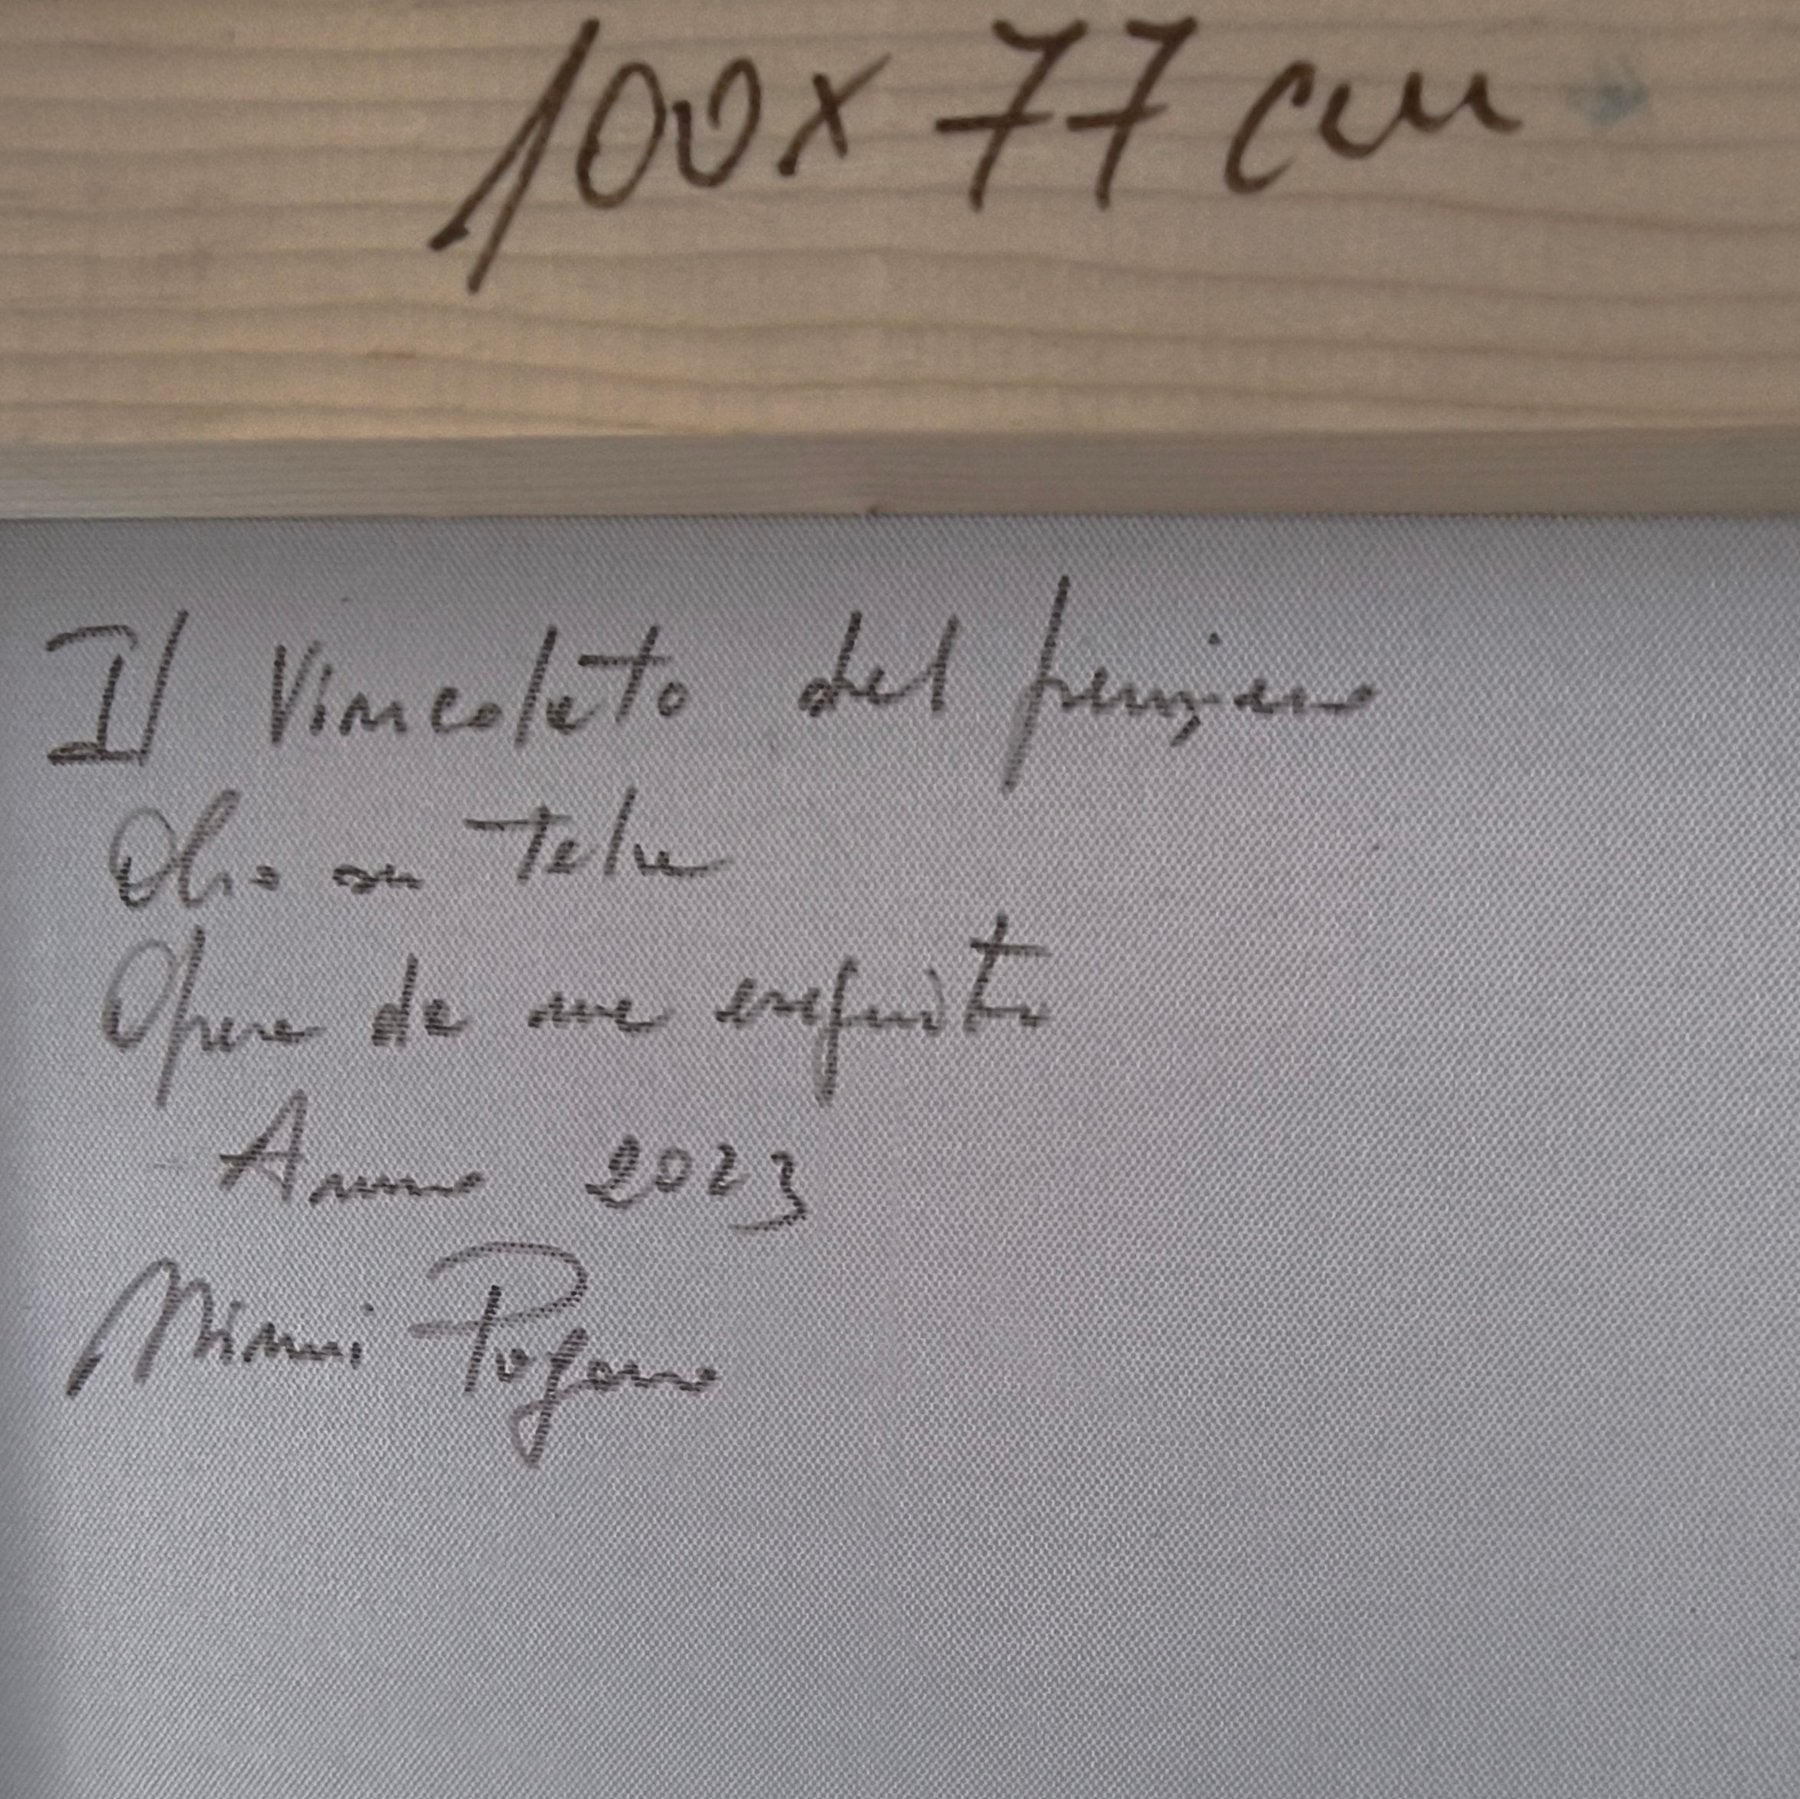 100 x 77 cm
Il Vincolato del pensiero
Olio su Tela
Opera da me eseguita
Anno 2023
Mimmi